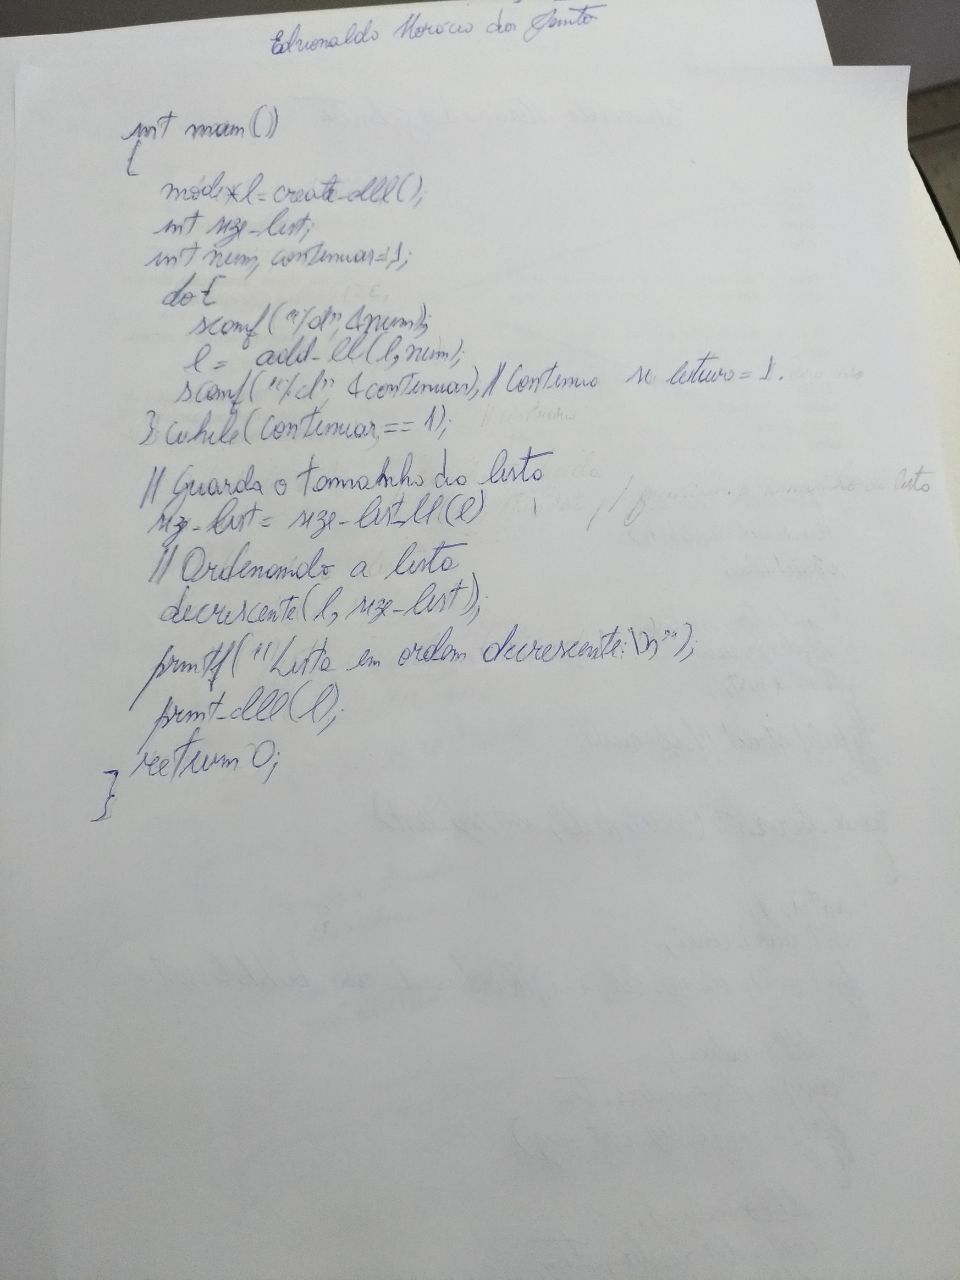 Edvonaldo Horácio dos Santos
int main()
{
node*l=create_dll();
int size_list;
int num, continuar=1;
do{
scanf("%d",&num);
l= add_ll(l,num);
scanf("%d", &continuar);//Continua se leitura=1.
}while(continuar == 1);
//Guarda o tamanho da lista
size_list= size_list_ll(l)
//Ordenando a lista
decrescente(l, size_list);
printf("Lista em ordem decrescente:\n");
print_dll(l);
return 0;
}